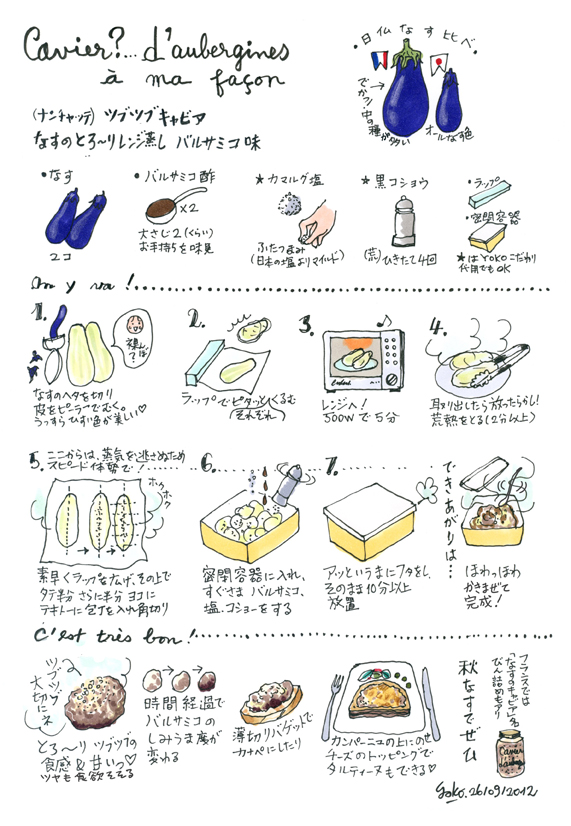 Cavier?... d'aubergines
à ma façon
・日仏なす比べ・
でかプリ中の
種が多い
オールなす色
(ナンチャッテ) ツブツブキャビア
なすのとろ〜りレンジ蒸し バルサミコ味
・なす
2コ
・バルサミコ酢
×2
大さじ2(くらい)
お手持ちを味見
★カマルグ塩
ふたつまみ
(日本の塩よりマイルド)
★黒コショウ
(荒)ひきたて4回
・ラップ
・密閉容器
★はYOKOこだわり
代用でもOK
On y va!
1.
なすのヘタを切り
皮をピーラーでむく。
うっすらひすい色が美しい♡
2.
ラップでピタッとくるむ
それぞれ
3.
レンジへ!
500Wで5分
4.
取り出したら放ったらかし!
荒熱をとる(2分以上)
5. ここからは、蒸気を逃さぬため
スピード体勢で!
ホクホク
素早くラップを広げ、その上で
タテ半分 さらに半分 ヨコに
テキトーに包丁を入れ角切り
6.
密閉容器に入れ、
すぐさま バルサミコ、
塩・コショーをする
7.
アッというまにフタをし、
そのまま10分以上
放置
できあがりは…
ほわっほわ
かきまぜて
完成!
C'est très bon!
ツブツブ
大切にネ
とろ〜り ツブツブの
食感&甘いっ♡
ツヤも食欲そそる
時間経過で
バルサミコの
しみうま度が
変わる
薄切りバゲットで
カナペにしたり
カンパーニュの上にのせ
チーズのトッピングで
タルティーヌもできる♡
秋なすでぜひ
フランスでは
「なすのキャビア」名
びん詰めもアリ
Cavier
d'auber
yoko. 26/09/2012